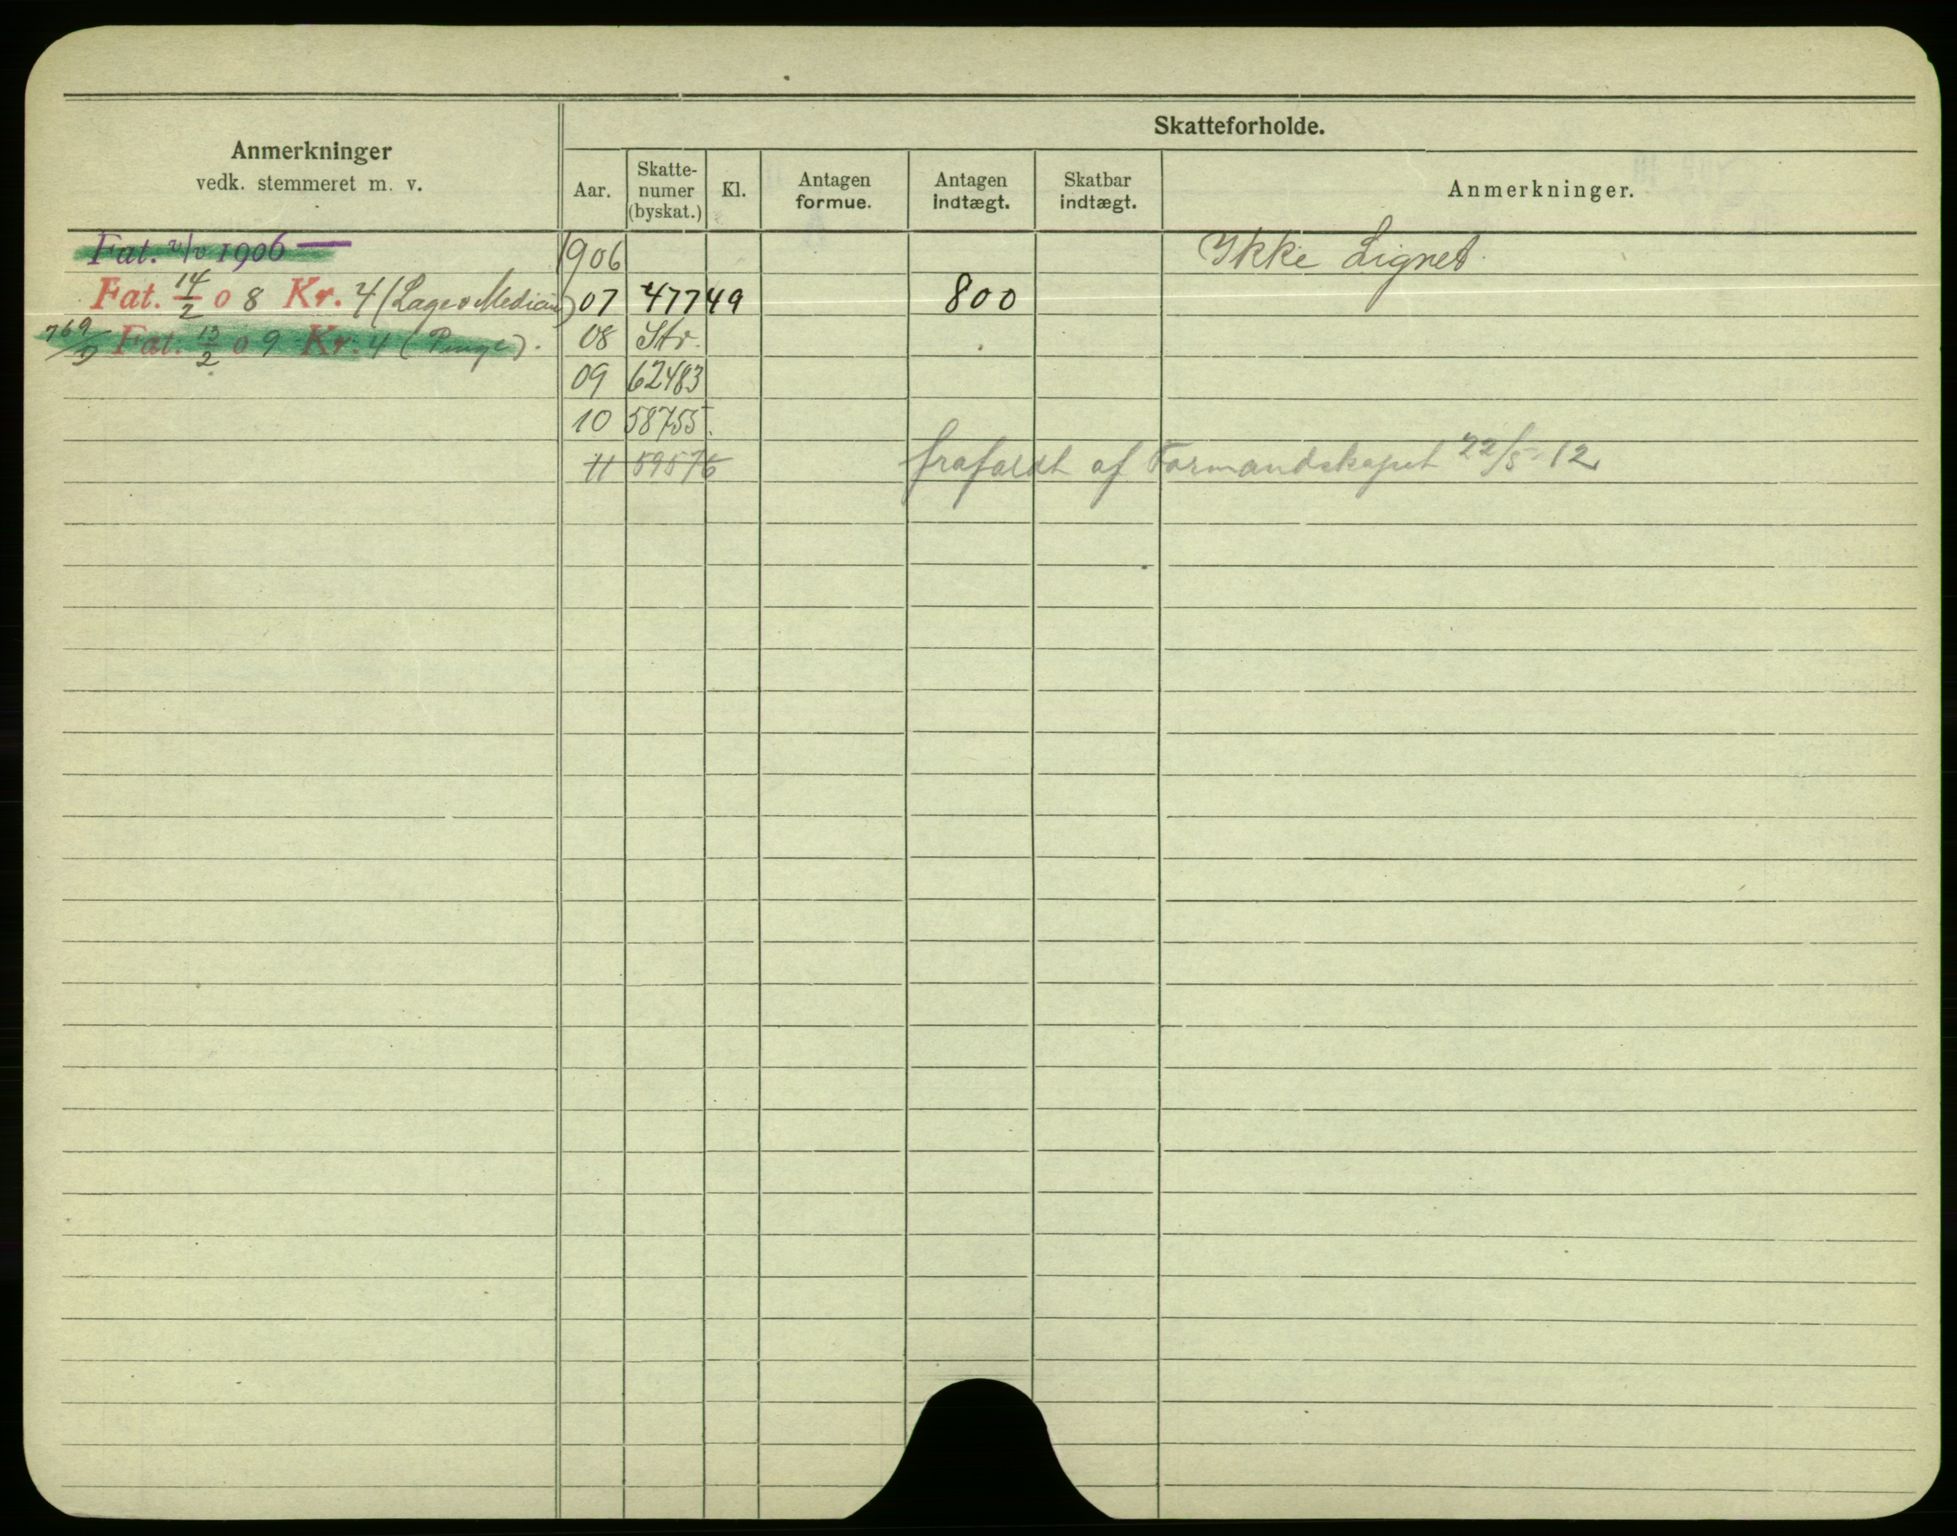 Skatteforholde.
Anmerkninger
vedk. stemmeret m. v.
Aar.
Skatte-
numer
(byskat.)
Kl.
Antagen
formue.
Antagen
indtægt.
Skatbar
indtægt.
Anmerkninger.
Fat. 1906 —
1906 Ikke Lignet
Fat. 14/2 08 Kr. 4 (Læge o Medicin)
07 47749 800
769/9 Fat. 13/2 09 Kr. 4 (Penge).
08 Str.
09 62483
10 58755.
11 59576 frafaldt af Formandskapet 22/5-12